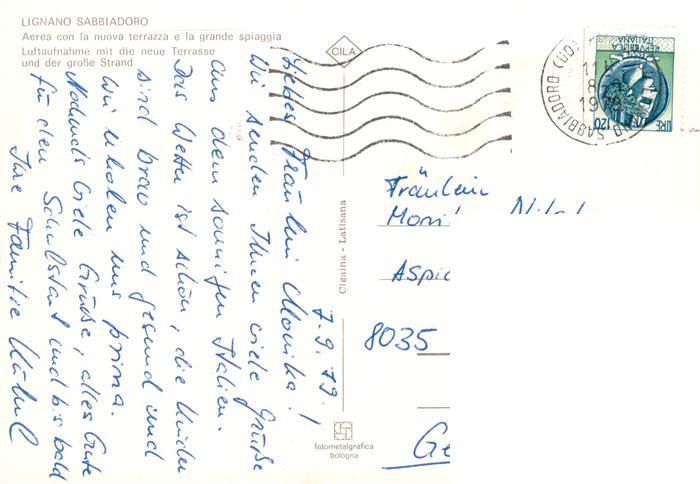 LIGNANO SABBIADORO
Aerea con la nuova terrazza e la grande spiaggia
Luftaufnahme mit die neue Terrasse
und der große Strand
CILA
7.9.79.
Liebes Fräulein Monika!
Wir senden Ihnen viele Grüße
aus dem sonnigen Italien.
Das Wetter ist schön, die Kinder
sind brav und gesund und
wir erholen uns prima.
Nochmals viele Grüße, alles Gute
für den Schulstart und bis bald
Ihre Familie
Cigaina - Latisana
fotometalgrafica
bologna
REPUBBLICA
ITALIANA
LIRE 120
SABBIADORO (UD)
Fräulein
8035